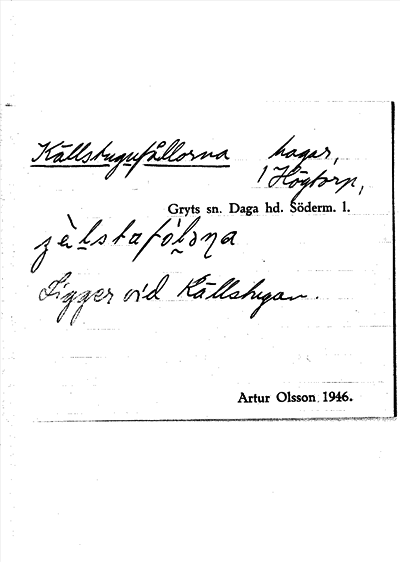 Källstugufållorna hagar,
1 Högtorp,
Gryts sn. Daga hd. Söderm. l.
Ligger vid Källstugan.
Artur Olsson 1946.